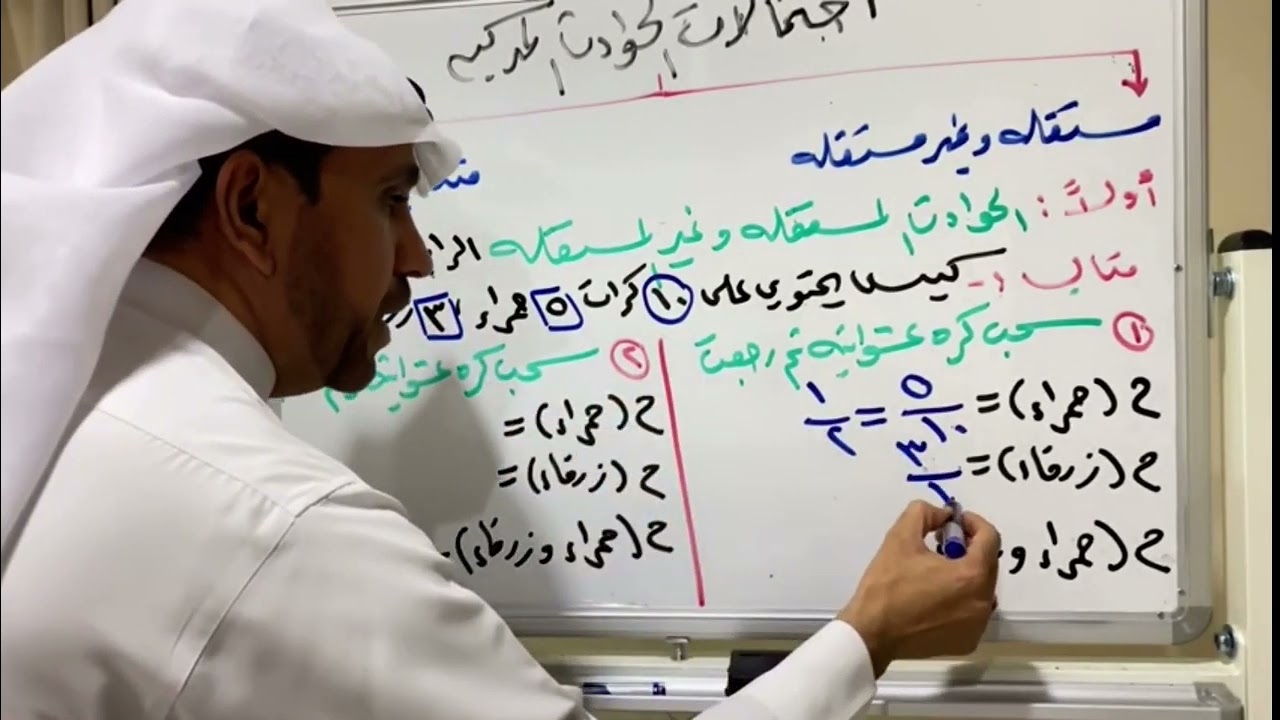 احتمالات الحوادث المركبه
مستقله وغير مستقله
أولاً: الحوادث المستقله وغير المستقله
مثال :- كيس يحتوي على ١٠ كرات ٥ حمراء ٣
١ سحب كره عشوائية ثم رجعت
ح (حمراء) = ٥/١٠ = ١/٢
ح (زرقاء) = ٣/١
ح (حمراء و
٢ سحب كره عشوائية
ح (حمراء) =
ح (زرقاء) =
ح (حمراء و زرقاء)